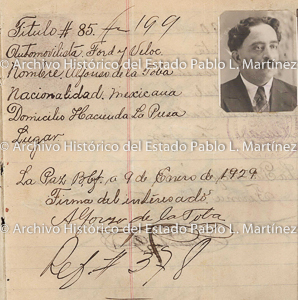 Título # 85. 199
Automovilista Ford y Veloc.
Nombre, Alfonso de la Toba
Archivo Histórico del Estado Pablo L. Martínez
Nacionalidad, Mexicana
Domicilio Hacienda La Presa
Lugar
Archivo Histórico del Estado Pablo L. Martínez
La Paz a 9 de Enero de 1929
Firma del interesado
Alfonso de la Toba
Archivo Histórico del Estado Pablo L. Martínez
Ref. # 378
Archivo Histórico del Estado Pablo L. Martínez